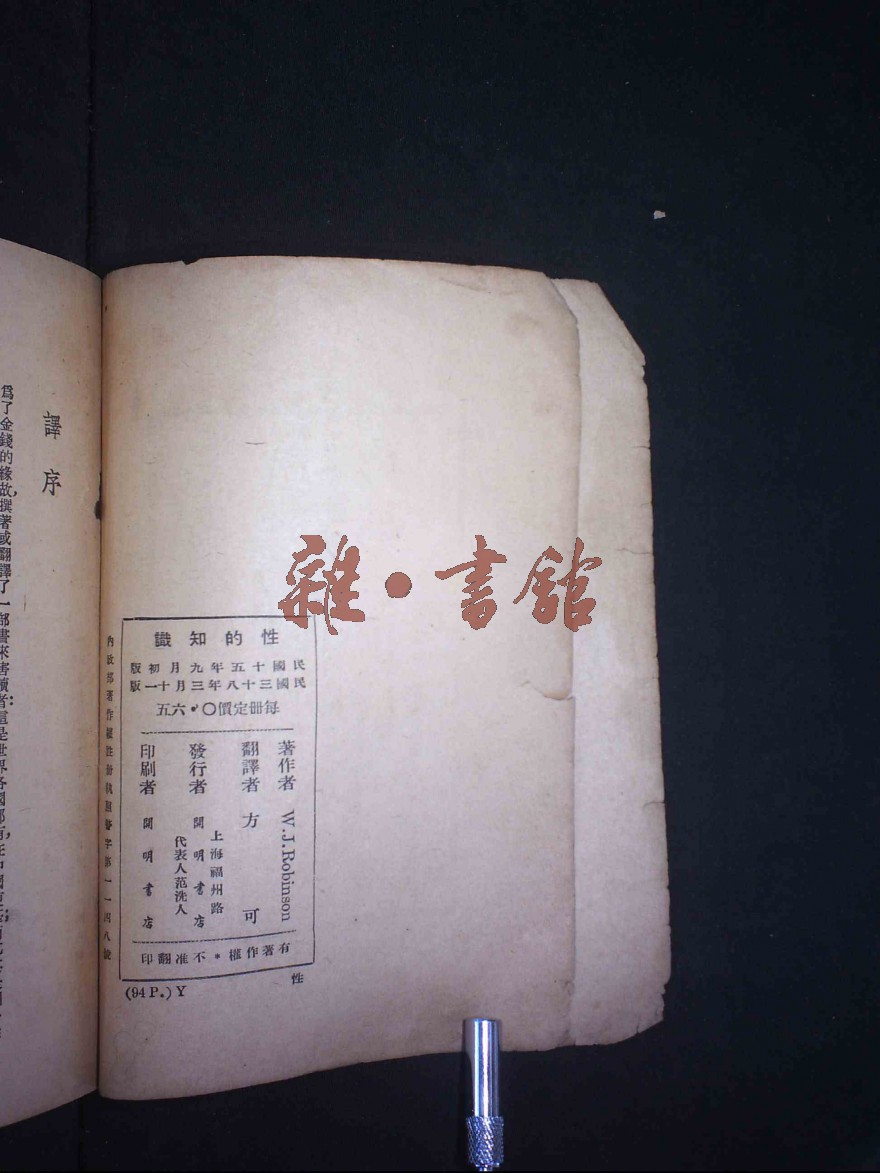 雜·書館
性的知識
民國十五年九月初版
民國三十八年三月十一版
每冊定價〇·六五
著作者 W.J.Robinson
翻譯者 方可
上海福州路
發行者 開明書店
代表人范洗人
印刷者 開明書店
有著作權*不准翻印
內政部著作權註冊執照警字第一一四八號
(94P.)Y
性
譯序
爲了金錢的緣故,撰著或翻譯了一部書來害讀者:這是世界各國都有,在中國